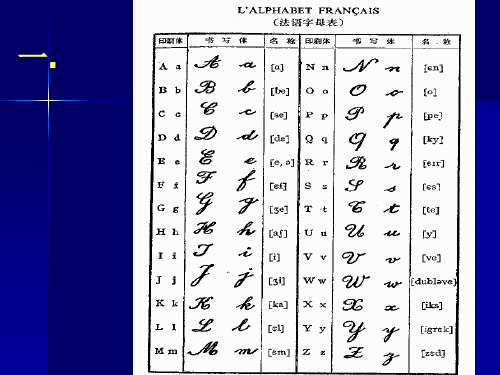 一.
L'ALPHABET FRANÇAIS
(法语字母表)
印刷体 书写体 名称 印刷体 书写体 名称
A a A a [a] N n N n [ɛn]
B b B b [be] O o O o [o]
C c C c [se] P p P p [pe]
D d D d [de] Q q Q q [ky]
E e E e [e, ə] R r R r [ɛːr]
F f F f [ɛf] S s S s [ɛs]
G g G g [ʒe] T t T t [te]
H h H h [aʃ] U u U u [y]
I i I i [i] V v V v [ve]
J j J j [ʒi] W w W w [dubləve]
K k K k [ka] X x X x [iks]
L l L l [ɛl] Y y Y y [igrɛk]
M m M m [ɛm] Z z Z z [zɛd]